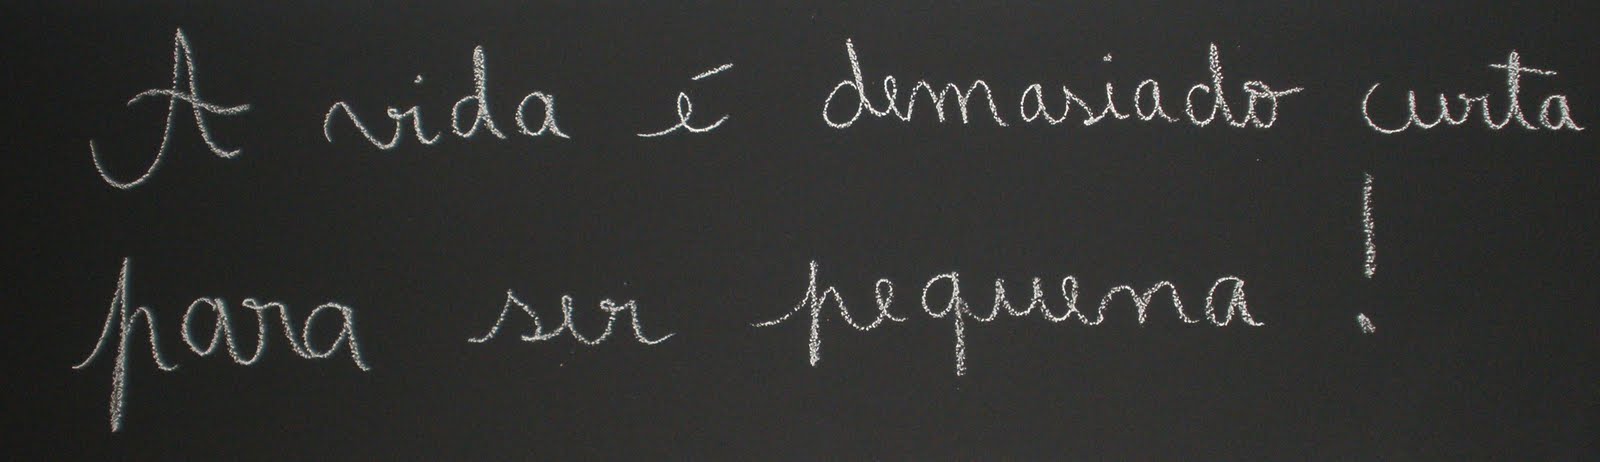 A vida é demasiado curta
para ser pequena!